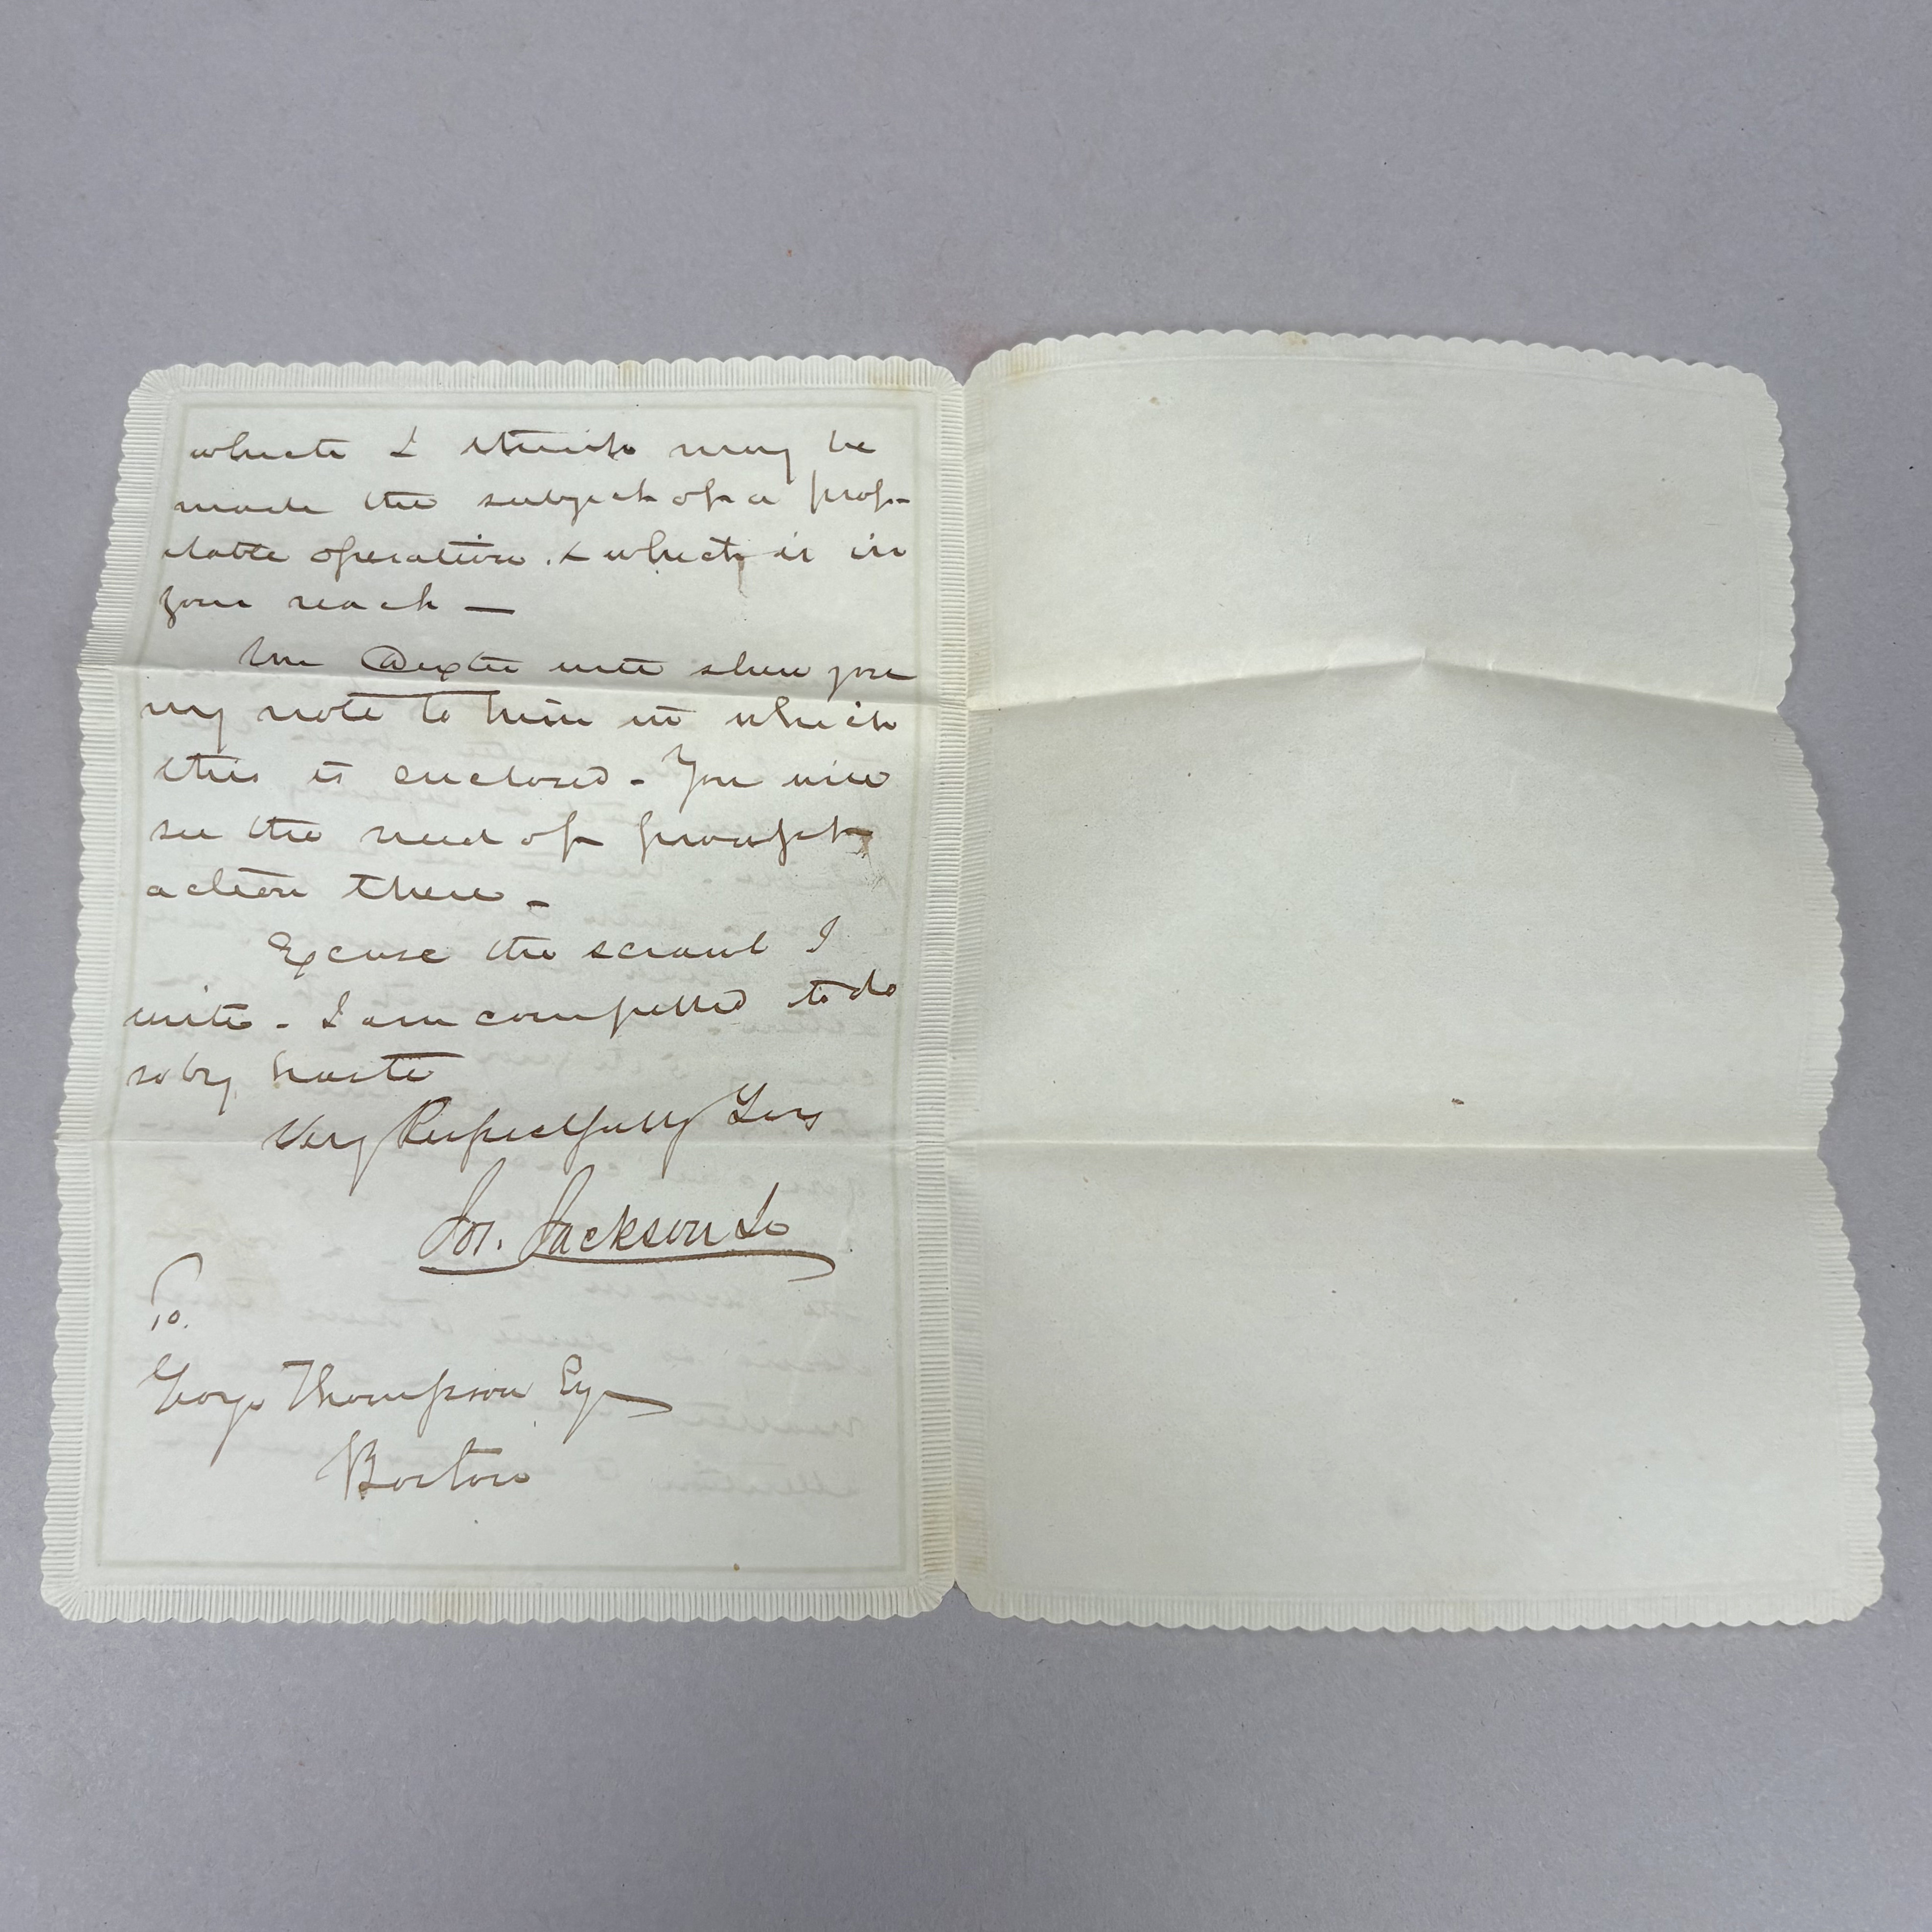 which I think may be
made the subject of a prof-
itable operation. & which is in
your reach —
Mr Dexter will show you
my note to him in which
this is enclosed - You will
see the need of prompt
action there -
Excuse the scrawl I
write - I am compelled to do
so by haste
Very Respectfully Yours
Jos. Jackson
To.
George Thompson Esq
Boston